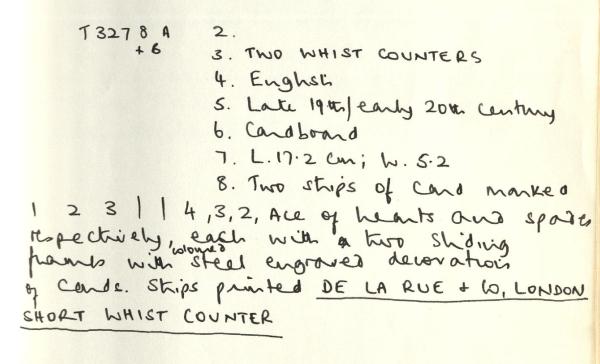 T3278 A 2.
+ 6 3. TWO WHIST COUNTERS
4. English
5. Late 19th/early 20th century
6. Cardboard
7. L.17.2 cm; W. 5.2
8. Two strips of card marked
1 2 3 | | 4, 3, 2, Ace of hearts and spades
respectively, each with a two sliding
frames with coloured steel engraved decoration
of cards. Strips printed DE LA RUE + CO, LONDON
SHORT WHIST COUNTER